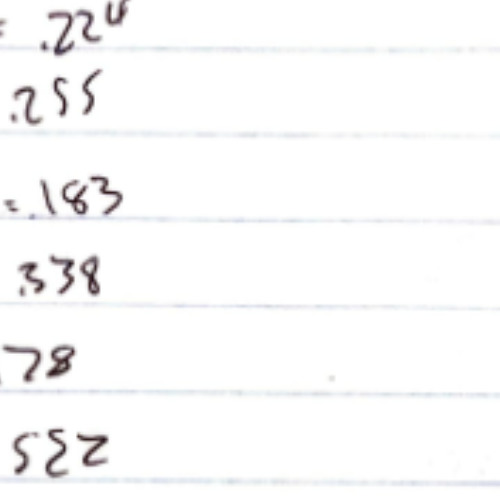 = .224
.255
= .183
.338
78